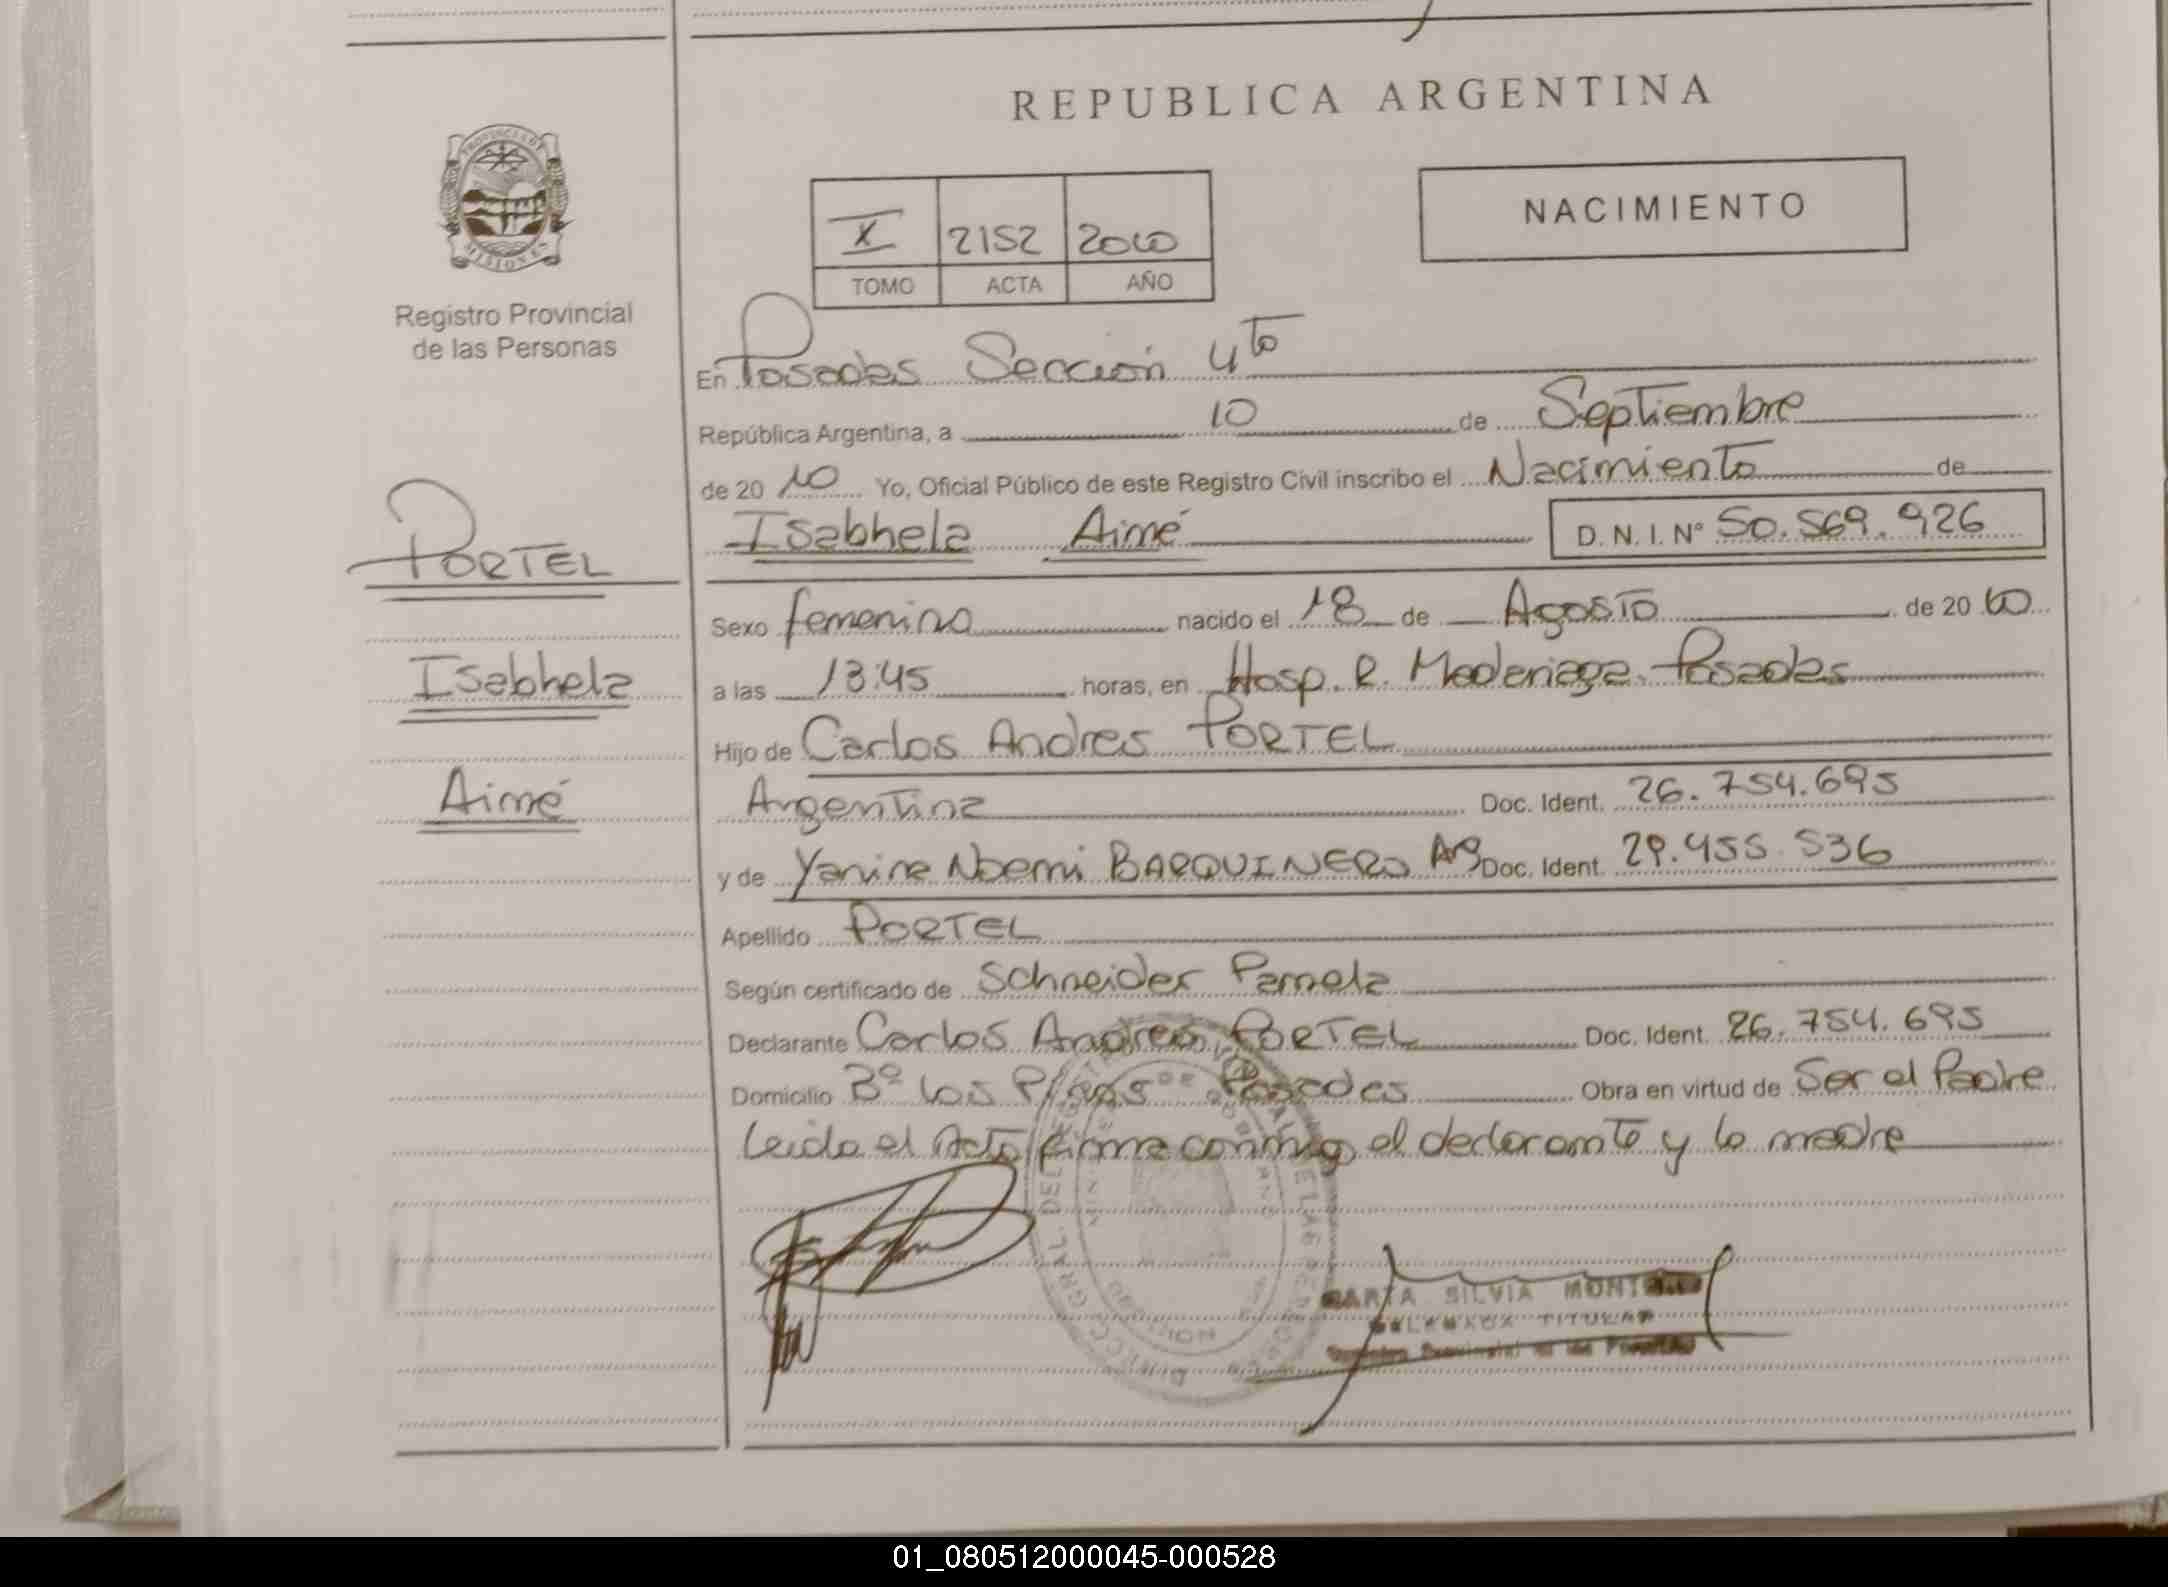 REPUBLICA ARGENTINA
PROVINCIA DE
MISIONES
Registro Provincial
de las Personas
X 2152 2010
TOMO ACTA AÑO
NACIMIENTO
En Posadas Sección 4to
República Argentina, a 10 de Septiembre
de 2010 Yo, Oficial Público de este Registro Civil inscribo el Nacimiento de
Isabhela Aimé D.N.I. N° 50.569.926
PORTEL
Isabhela
Aimé
Sexo femenino nacido el 18 de Agosto de 2010
a las 13:45 horas, en Hosp. R. Maderiaga. Posadas
Hijo de Carlos Andres PORTEL
Argentina Doc. Ident. 26.754.695
y de Yanina Noemi BARQUINERO Arg Doc. Ident. 29.455.536
Apellido PORTEL
Según certificado de Schneider Pamela
Declarante Carlos Andres PORTEL Doc. Ident. 26.754.695
Domicilio Bº Los Pinos Posadas Obra en virtud de Ser el Padre
Leida el Acta firma conmigo el declarante y la madre
SILVIA
TITULAR
01_080512000045-000528